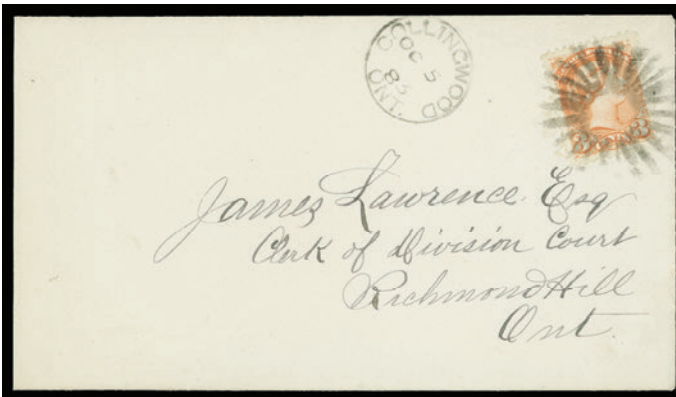 COLLINGWOOD
OC 5
85
ONT.
3 CENTS 3
James Lawrence Esq
Clerk of Division Court
Richmond Hill
Ont.